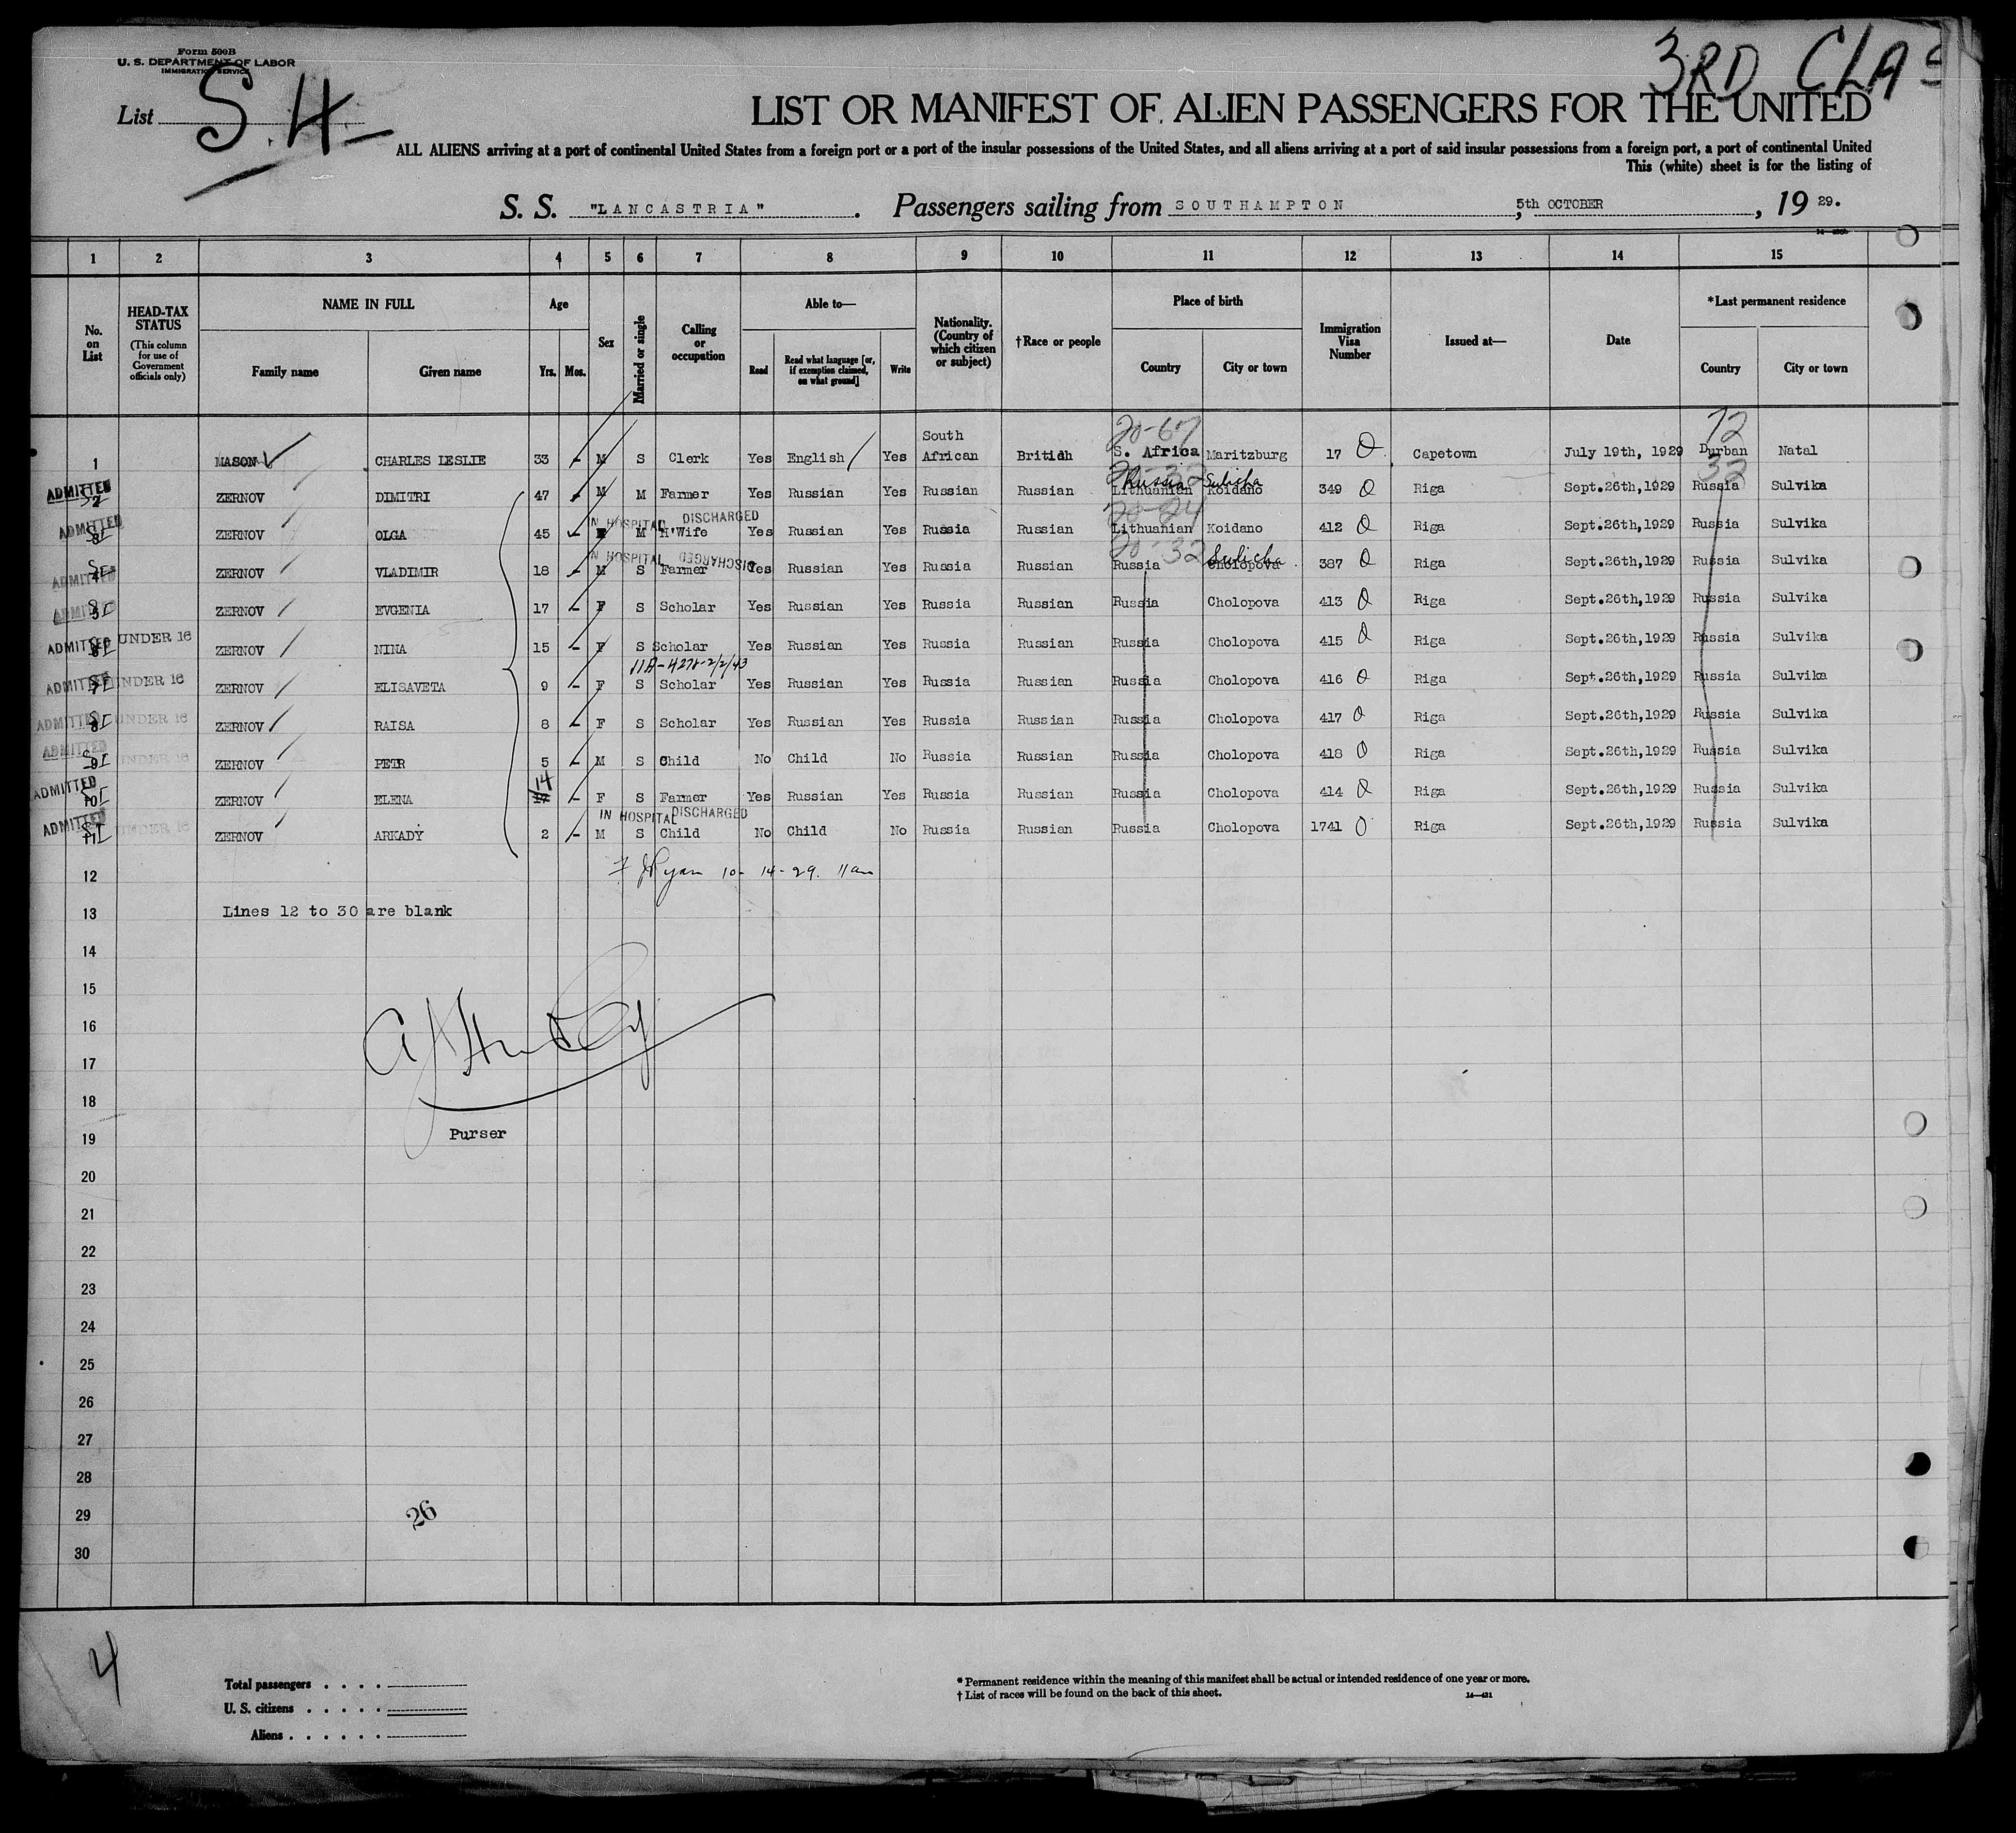 Form 500B
U. S. DEPARTMENT OF LABOR
IMMIGRATION SERVICE
3RD CLAS
List S.4
LIST OR MANIFEST OF ALIEN PASSENGERS FOR THE UNITED
ALL ALIENS arriving at a port of continental United States from a foreign port or a port of the insular possessions of the United States, and all aliens arriving at a port of said insular possessions from a foreign port, a port of continental United
This (white) sheet is for the listing of
S. S. "LANCASTRIA". Passengers sailing from SOUTHAMPTON, 5th OCTOBER, 19 29.
1 2 3 4 5 6 7 8 9 10 11 12 13 14 15
No. on List
HEAD-TAX STATUS
(This column for use of Government officials only)
NAME IN FULL
Family name Given name
Age
Yrs. Mos.
Sex
Married or single
Calling or occupation
Able to—
Read Read what language [or, if exemption claimed, on what ground] Write
Nationality. (Country of which citizen or subject)
†Race or people
Place of birth
Country City or town
Immigration Visa Number
Issued at—
Date
*Last permanent residence
Country City or town
20-67 72
1 MASON CHARLES LESLIE 33 - M S Clerk Yes English Yes South African Britidh S. Africa Maritzburg 17 Capetown July 19th, 1929 Durban Natal
20-32 Russia Sulicha 32
ADMITTED 2 ZERNOV DIMITRI 47 - M M Farmer Yes Russian Yes Russian Russian Lithuanian Koidano 349 Riga Sept.26th,1929 Russia Sulvika
IN HOSPITAL DISCHARGED 20-24
ADMITTED 3 ZERNOV OLGA 45 - F M H'Wife Yes Russian Yes Russia Russian Lithuanian Koidano 412 Riga Sept.26th,1929 Russia Sulvika
IN HOSPITAL DISCHARGED 20-32 Sulicha
ADMITTED 4 ZERNOV VLADIMIR 18 - M S Farmer Yes Russian Yes Russia Russian Russia Cholopova 387 Riga Sept.26th,1929 Russia Sulvika
ADMITTED 5 ZERNOV EVGENIA 17 - F S Scholar Yes Russian Yes Russia Russian Russia Cholopova 413 Riga Sept.26th,1929 Russia Sulvika
ADMITTED 6 UNDER 16 ZERNOV NINA 15 - F S Scholar Yes Russian Yes Russia Russian Russia Cholopova 415 Riga Sept.26th,1929 Russia Sulvika
11A-4278-2/2/43
ADMITTED 7 UNDER 16 ZERNOV ELISAVETA 9 - F S Scholar Yes Russian Yes Russia Russian Russia Cholopova 416 Riga Sept.26th,1929 Russia Sulvika
ADMITTED 8 UNDER 16 ZERNOV RAISA 8 - F S Scholar Yes Russian Yes Russia Russian Russia Cholopova 417 Riga Sept.26th,1929 Russia Sulvika
ADMITTED 9 UNDER 16 ZERNOV PETR 5 - M S Child No Child No Russia Russian Russia Cholopova 418 Riga Sept.26th,1929 Russia Sulvika
ADMITTED 10 ZERNOV ELENA 14 - F S Farmer Yes Russian Yes Russia Russian Russia Cholopova 414 Riga Sept.26th,1929 Russia Sulvika
IN HOSPITAL DISCHARGED
ADMITTED 11 UNDER 16 ZERNOV ARKADY 2 - M S Child No Child No Russia Russian Russia Cholopova 1741 Riga Sept.26th,1929 Russia Sulvika
12 Ryan 10-14-29. 11am
13 Lines 12 to 30 are blank
14
15
16
17
18
19 Purser
20
21
22
23
24
25
26
27
28
29 26
30
4
Total passengers . . . .
U. S. citizens . . . . .
Aliens . . . . . .
* Permanent residence within the meaning of this manifest shall be actual or intended residence of one year or more.
† List of races will be found on the back of this sheet. 14—421